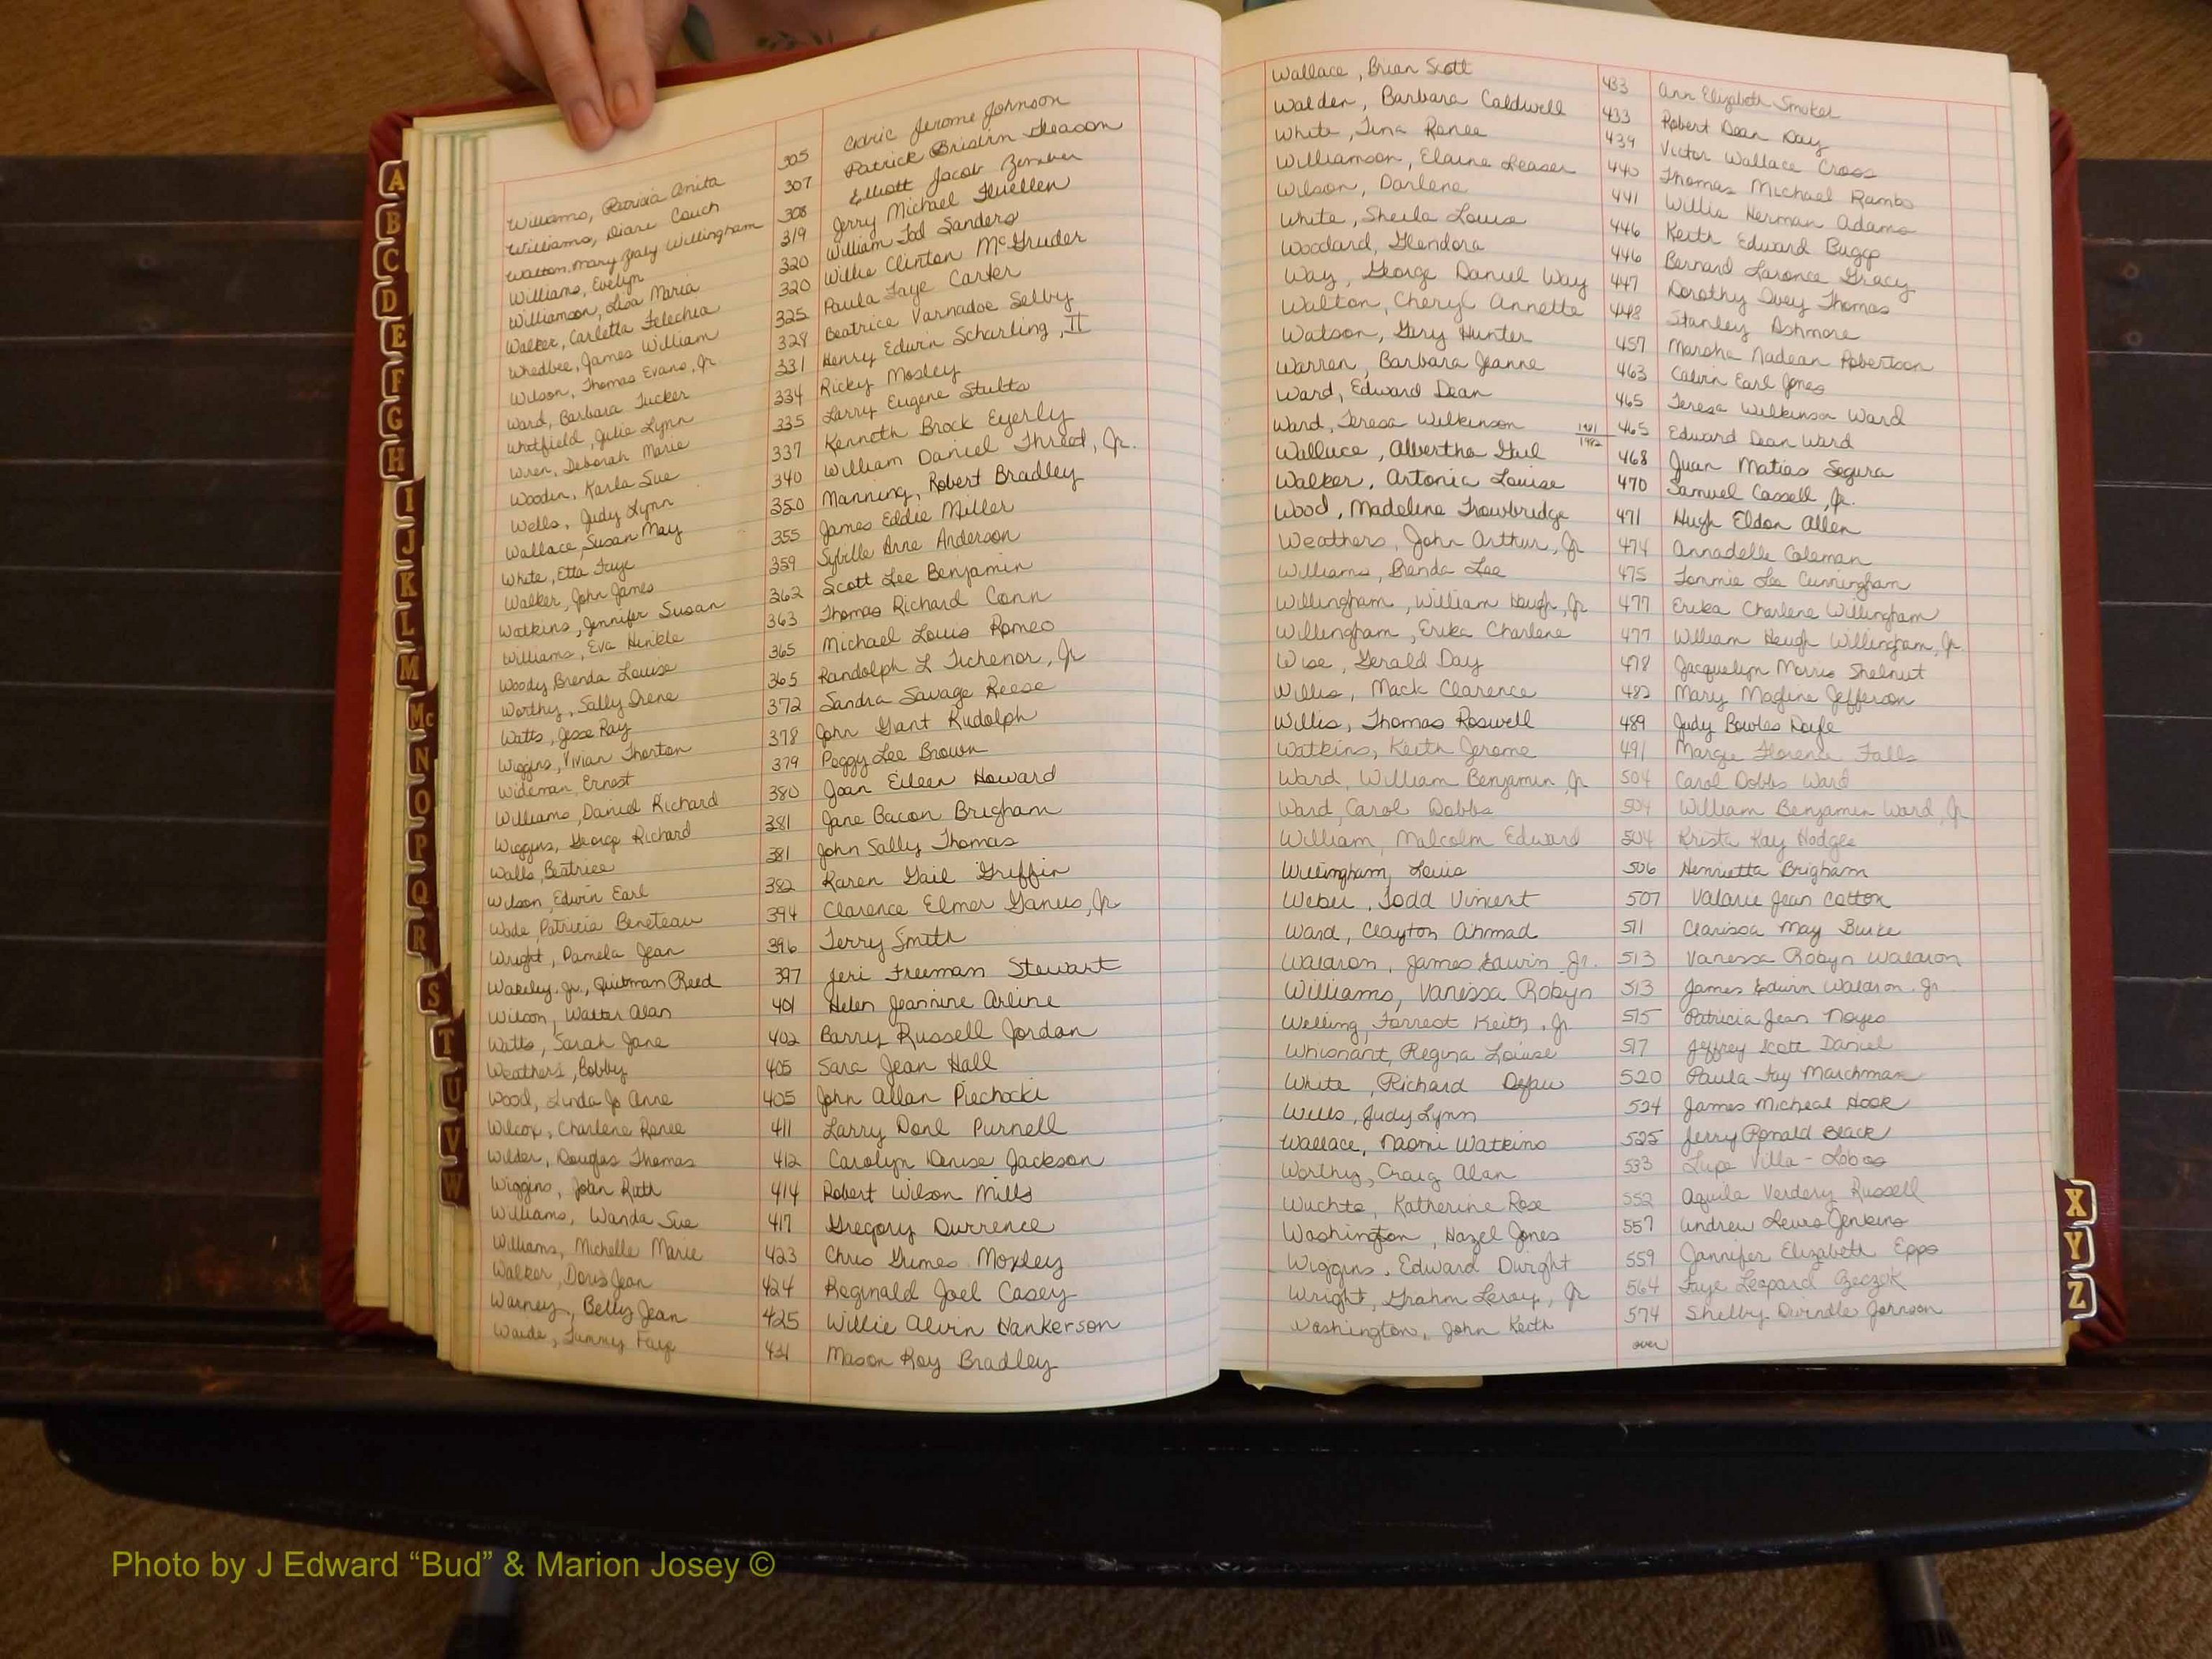 Williams, Patricia Anita 305 Cedric Jerome Johnson
Williams, Diane Couch 307 Patrick Brislin Gleason
Walton, Mary Zealy Willingham 308 Elliott Jacob Zember
Williams, Evelyn 319 Jerry Michael Fluellen
Williamson, Lisa Maria 320 William Tod Sanders
Walker, Carletta Felechia 320 Willie Clinton McGruder
Whedbee, James William 325 Paula Faye Carter
Wilson, Thomas Evans, Jr 328 Beatrice Varnadoe Selby
Ward, Barbara Tucker 331 Henry Edwin Scharling, II
Whitfield, Julie Lynn 334 Ricky Mosley
Wren, Deborah Marie 335 Larry Eugene Stults
Wooden, Karla Sue 337 Kenneth Brock Eyerly
Wells, Judy Lynn 340 William Daniel Threat, Jr.
Wallace Susan May 350 Manning, Robert Bradley
White, Etta Faye 355 James Eddie Miller
Walker, John James 359 Sybille Anne Anderson
Watkins, Jennifer Susan 362 Scott Lee Benjamin
Williams, Eva Hinkle 363 Thomas Richard Conn
Woody Brenda Louise 365 Michael Louis Romeo
Worthy, Sally Irene 365 Randolph L Tichenor, Jr
Watts, Jesse Ray 372 Sandra Savage Reese
Wiggins, Vivian Thorton 378 John Grant Rudolph
Wideman Ernest 379 Peggy Lee Brown
Williams, Daniel Richard 380 Joan Eileen Howard
Wiggins, George Richard 381 Jane Bacon Brigham
Walls, Beatrice 381 John Sally Thomas
Wilson, Edwin Earl 382 Karen Gail Griffin
Wade, Patricia Beneteau 394 Clarence Elmer Ganus, Jr
Wright, Pamela Jean 396 Terry Smith
Wakeley, Jr., Quitman Reed 397 Jeri Freeman Stewart
Wilson, Walter Alan 401 Helen Jeannine Arline
Watts, Sarah Jane 402 Barry Russell Jordan
Weathers, Bobby 405 Sara Jean Hall
Wood, Linda Jo Anne 405 John Allan Piechocki
Wilcox, Charlene Renee 411 Larry Donl Purnell
Wilder, Douglas Thomas 412 Carolyn Denise Jackson
Wiggins, Joan Ruth 414 Robert Wilson Mills
Williams, Wanda Sue 417 Gregory Durrence
Williams, Michelle Marie 423 Chris Grimes Moxley
Walker, Doris Jean 424 Reginald Joel Casey
Warney, Betty Jean 425 Willie Alvin Hankerson
Waide, Tammy Faye 431 Mason Roy Bradley
Wallace, Brian Scott 433 Ann Elizabeth Smoker
Walden, Barbara Caldwell 433 Robert Dean Day
White, Tina Renee 439 Victor Wallace Cross
Williamson, Elaine Leaser 440 Thomas Michael Rambo
Wilson, Darlene 441 Willie Herman Adams
White, Sheila Louise 446 Keith Edward Bugg
Woodard, Glendora 446 Bernard Laronce Gracy
Way, George Daniel Way 447 Dorothy Ivey Thomas
Walton, Cheryl Annette 448 Stanley Ashmore
Watson, Gary Hunter 457 Marsha Nadean Robertson
Warren, Barbara Jeanne 463 Calvin Earl Jones
Ward, Edward Dean 465 Teresa Wilkinson Ward
Ward, Teresa Wilkinson 465 Edward Dean Ward
1981
1982
Wallace, Albertha Gail 468 Juan Matias Segura
Walker, Artonia Louise 470 Samuel Cassell, Jr.
Wood, Madeline Trowbridge 471 Hugh Eldon Allen
Weathers, John Arthur, Jr 474 Annadelle Coleman
Williams, Brenda Lee 475 Tommie Lee Cunningham
Willingham, William Heugh, Jr 477 Erika Charlene Willingham
Willingham, Erika Charlene 477 William Heugh Willingham, Jr.
Wise, Gerald Day 478 Jacquelyn Morris Shelnut
Willis, Mack Clarence 482 Mary Magline Jefferson
Willis, Thomas Roswell 489 Judy Bowles Doyle
Watkins, Keith Jerome 491 Margie Florence Falls
Ward, William Benjamin, Jr 504 Carol Dobbs Ward
Ward, Carol Dobbs 504 William Benjamin Ward, Jr
William, Malcolm Edward 504 Krista Kay Hodge
Willingham, Louis 506 Henrietta Brigham
Weber, Todd Vincent 507 Valarie Jean Cotton
Ward, Clayton Ahmad 511 Clarissa May Burke
Waldron, James Edwin Jr. 513 Vanessa Robyn Waldron
Williams, Vanessa Robyn 513 James Edwin Waldron Jr
Welling, Forrest Keith, Jr 515 Patricia Jean Noyes
Whisnant, Regina Louise 517 Jeffrey Scott Daniel
White, Richard 520 Paula Fay Marchman
Wells, Judy Lynn 524 James Micheal Hook
Wallace, Naomi Watkins 525 Jerry Ronald Black
Worthy, Craig Alan 533 Lupe Villa-Lobos
Wuchte, Katherine Rose 552 Aquila Verdery Russell
Washington, Hazel Jones 557 Andrew Lewis Jenkins
Wiggins, Edward Dwight 559 Jannifer Elizabeth Epps
Wright, Grahm Leroy, Jr 564 Faye Leopard
Washington, John Keith 574 Shelby Dwindle Johnson
over
A
B
C
D
E
F
G
H
I
J
K
L
M
Mc
N
O
P
Q
R
S
T
U
V
W
X
Y
Z
Photo by J Edward “Bud” & Marion Josey ©